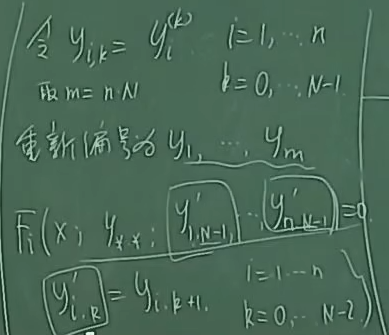 令 y_{i,k} = y_i^{(k)} i=1,…n
取 m = n·N k=0,…,N-1.
重新编号为 y_1, …, y_m
F_i(x; y_{**}; y'_{1,N-1}, … y'_{n,N-1}) = 0.
y'_{i,k} = y_{i,k+1}, i=1…n
k=0,…N-2.